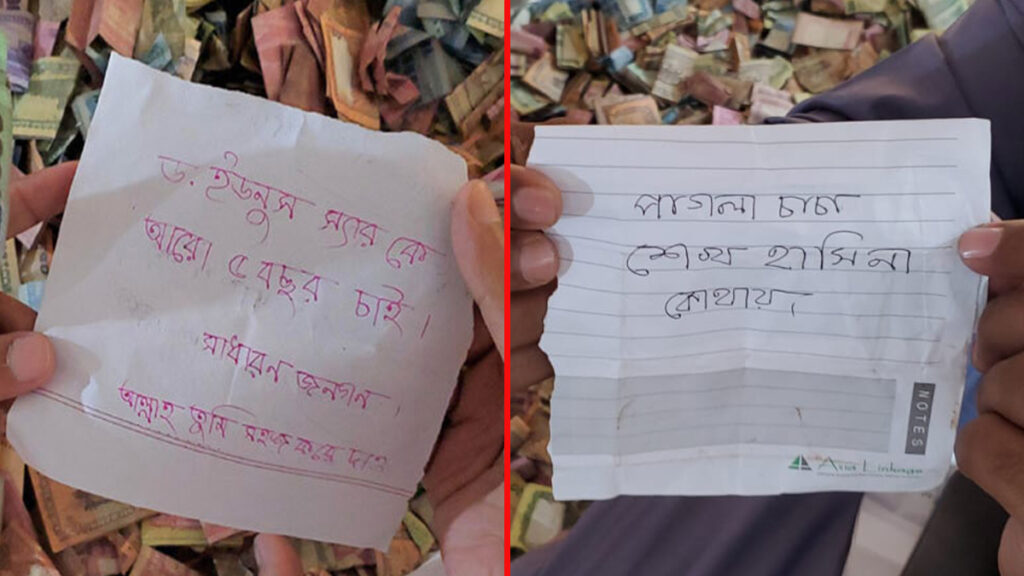 ড. ইউনুস স্যার কে
আরো ৫ বছর চাই।
সাধারন জনগন।
আল্লাহ তুমি সহজ করে দাও
পাগলা চাচা
শেখ হাসিনা
কোথায়।
NOTES
Asia Linkage